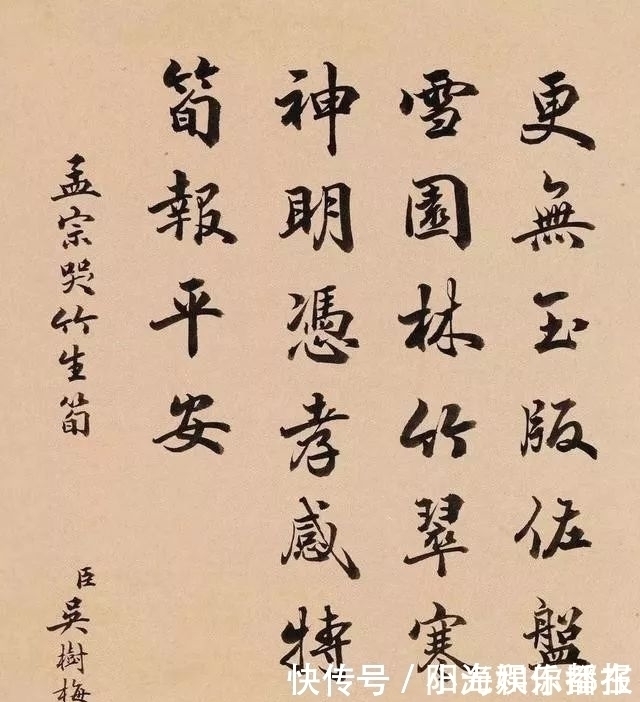 更無玉版佐盤
雪園林竹翠寒
神明憑孝感特
筍報平安
孟宗哭竹生筍
臣吳樹梅
快传号 /